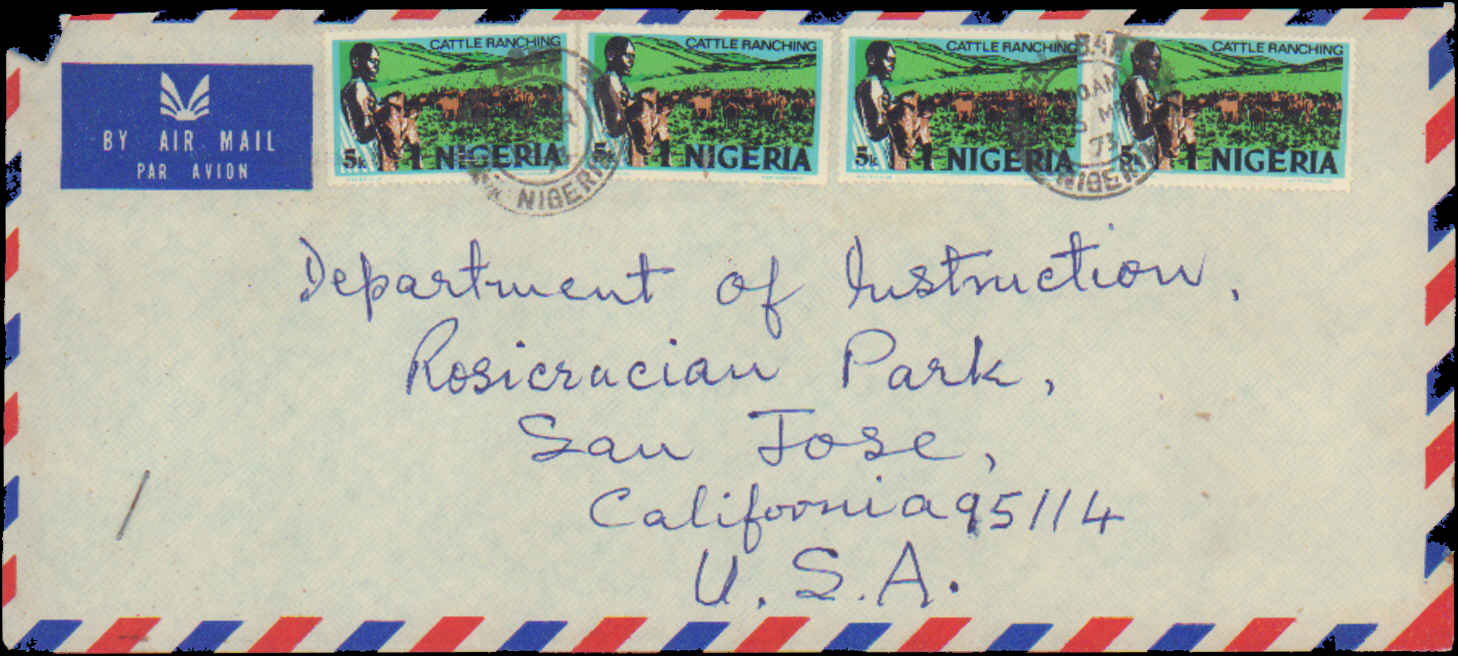 CATTLE RANCHING
5k NIGERIA
CATTLE RANCHING
5k NIGERIA
CATTLE RANCHING
5k NIGERIA
CATTLE RANCHING
5k NIGERIA
NIGERIA
73
NIGERIA
BY AIR MAIL
PAR AVION
Department of Instruction,
Rosicrucian Park,
San Jose,
California 95114
U.S.A.